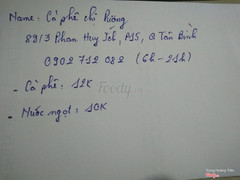 Name: Cà phê chị Phương
89/3 Phan Huy Ích, P15, Q Tân Bình
0902 712 082 (6h - 21h)
- Cà phê: 12K
Foody
- Nước ngọt: 10K